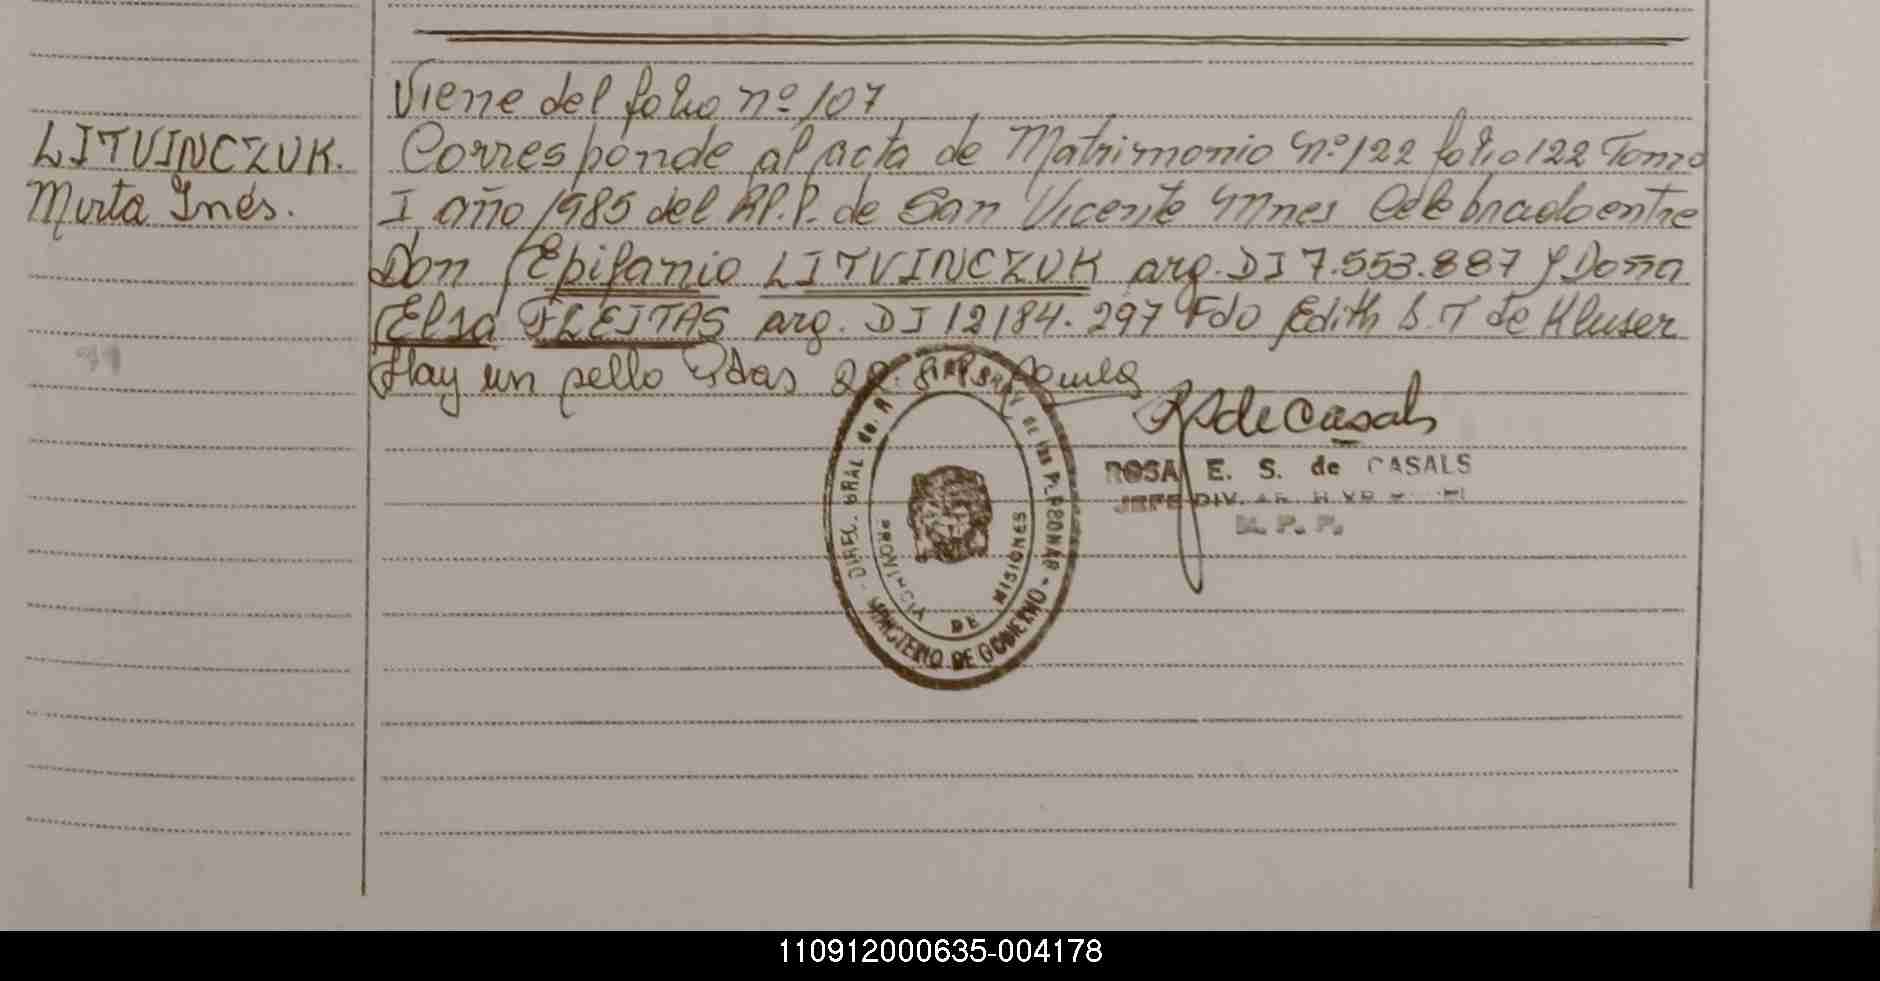 Viene del folio nº 107
LITVINCZUK. Corresponde al acta de Matrimonio nº 122 folio 122 Tomo
Mirta Inés. I año 1985 del R.P.P. de San Vicente Mnes Celebrado entre
Don Epifanio LITVINCZUK arg. DI 7.553.887 y Doña
Elsa FLEITAS arg. DI 12184.297 Fdo Edith S. T de Kluser
Hay un sello Pdas
RdeCasals
ROSA E. S. de CASALS
JEFE DIV.
R. P. P.
DIREC. GRAL de DE LAS PERSONAS
PROVINCIA DE MISIONES
MINISTERIO DE GOBIERNO
110912000635-004178